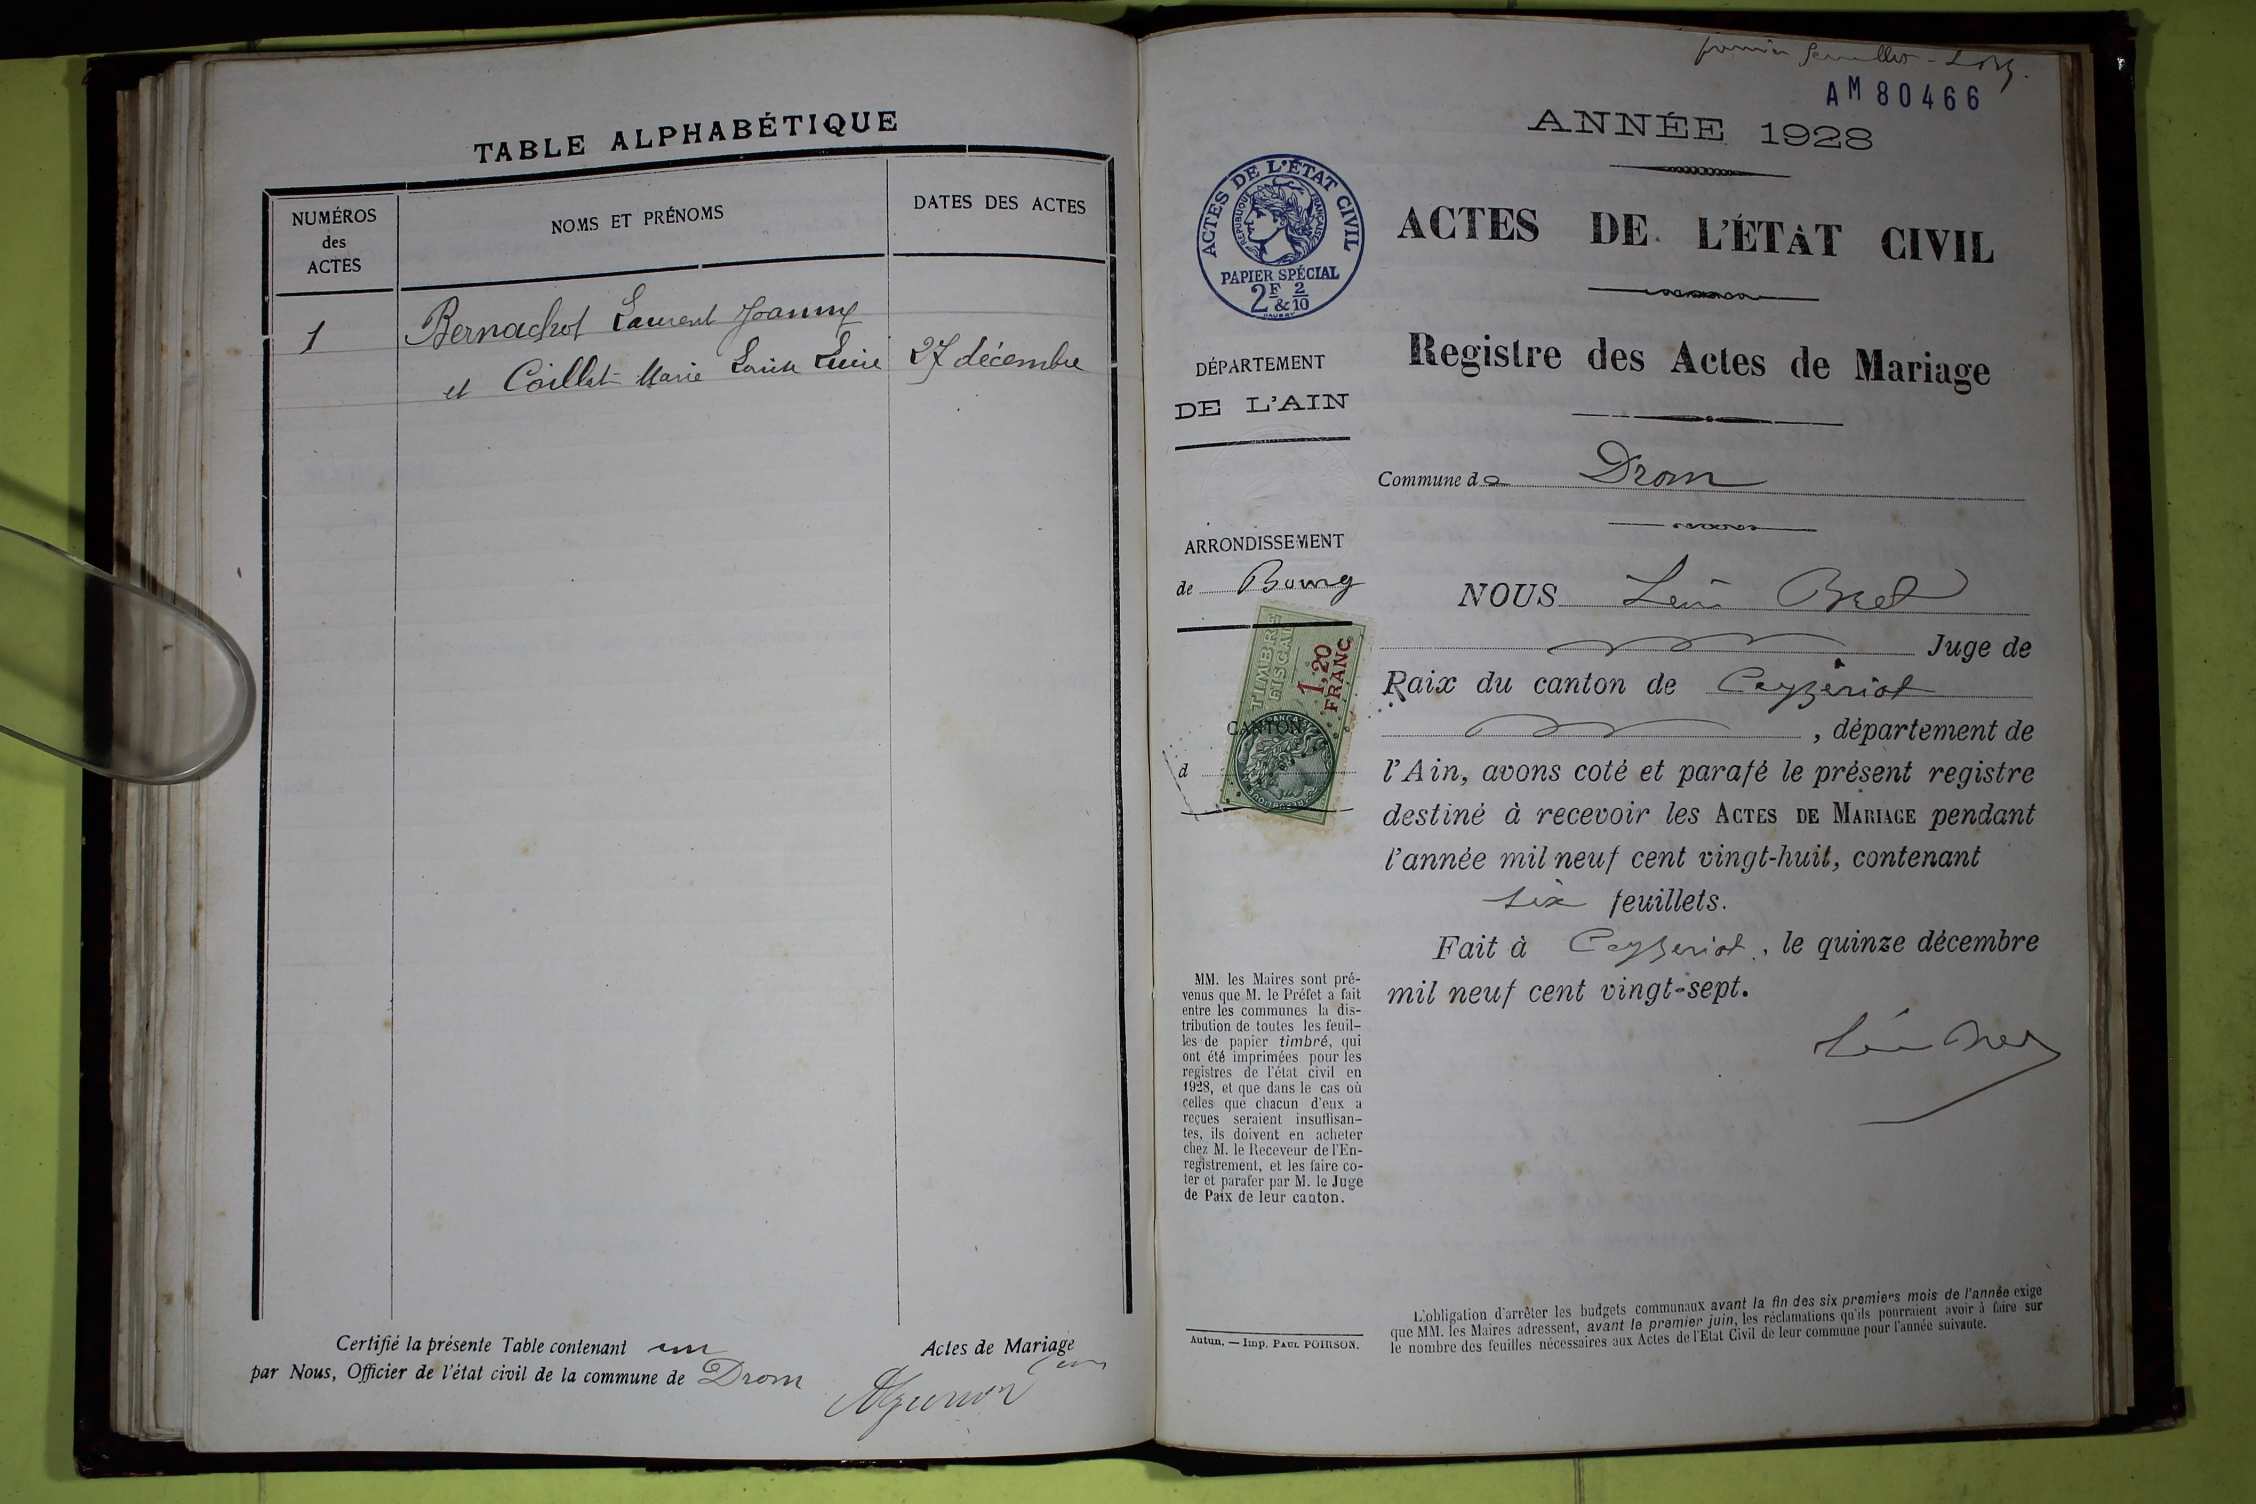 TABLE ALPHABÉTIQUE
NUMÉROS
des
ACTES
NOMS ET PRÉNOMS
DATES DES ACTES
1
Bernachot Laurent Joanny
et Caillat Marie Louise Lucie
27 décembre
Certifié la présente Table contenant un
Actes de Mariage
par Nous, Officier de l'état civil de la commune de Drom
premier
AM 80466
ANNÉE 1928
ACTES DE L'ÉTAT CIVIL
RÉPUBLIQUE FRANÇAISE
PAPIER SPÉCIAL
2F & 2/10
ACTES DE L'ÉTAT CIVIL
Registre des Actes de Mariage
DÉPARTEMENT
DE L'AIN
Commune de Drom
ARRONDISSEMENT
de Bourg
TIMBRE
FISCAL
1,20
FRANC
CANTON
d
NOUS Léon Bret
Juge de
Paix du canton de Ceyzériat
, département de
l'Ain, avons coté et parafé le présent registre
destiné à recevoir les ACTES DE MARIAGE pendant
l'année mil neuf cent vingt-huit, contenant
six feuillets.
Fait à Ceyzeriat, le quinze décembre
mil neuf cent vingt-sept.
Léon Bret
MM. les Maires sont pré-
venus que M. le Préfet a fait
entre les communes la dis-
tribution de toutes les feuil-
les de papier timbré, qui
ont été imprimées pour les
registres de l'état civil en
1928, et que dans le cas où
celles que chacun d'eux a
reçues seraient insuffisan-
tes, ils doivent en acheter
chez M. le Receveur de l'En-
registrement, et les faire co-
ter et parafer par M. le Juge
de Paix de leur canton.
Autun. — Imp. PAUL POIRSON.
L'obligation d'arrêter les budgets communaux avant la fin des six premiers mois de l'année exige
que MM. les Maires adressent, avant le premier juin, les réclamations qu'ils pourraient avoir à faire sur
le nombre des feuilles nécessaires aux Actes de l'Etat Civil de leur commune pour l'année suivante.